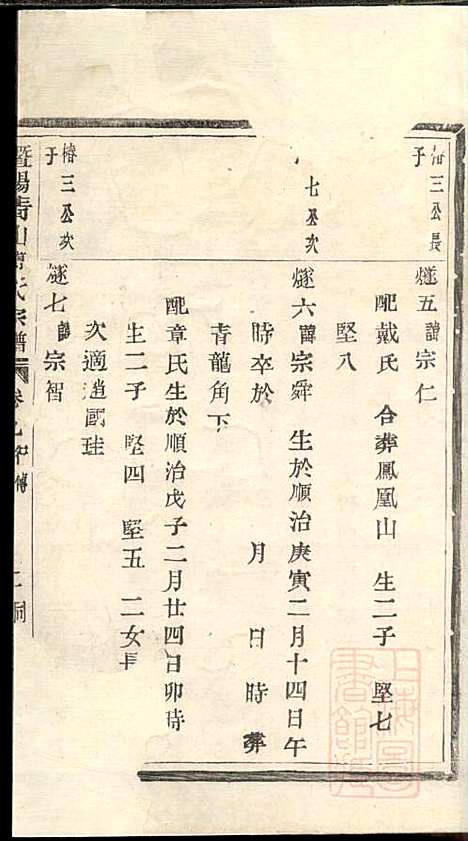 椿三公長
子
燧五 諱宗仁
配戴氏 合葬鳳凰山 生二子 堅七
堅八
七公次
燧六 諱宗舜 生於順治庚寅二月十四日午
時卒於 月 日 時 葬
青龍角下
配章氏生於順治戊子二月廿四日卯時
生二子 堅四 堅五 二女長
次適趙國珪
椿三公次
子
燧七 諱宗智
暨陽 山 氏宗譜 卷 傳
上海圖書館藏